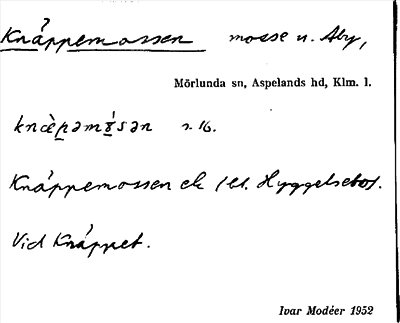 Knäppemossen mosse u. Åby,
Mörlunda sn, Aspelands hd, Klm. l.
knæ̀pəmɤ́sən s. 16.
Knäppemossen ek (bl. Hyggelsebo).
Vid Knäppet.
Ivar Modéer 1952